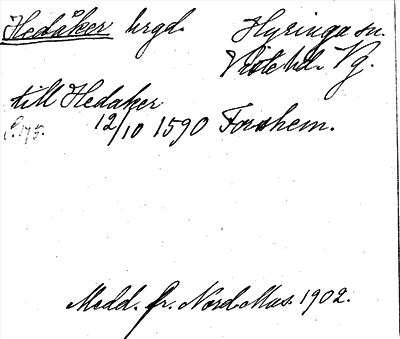 Hedåker hrgd. Hyringa sn.
Viste hd. Vg.
till Hedaker
12/10 1590 Forshem.
Medd. fr. Nord. Mus. 1902.